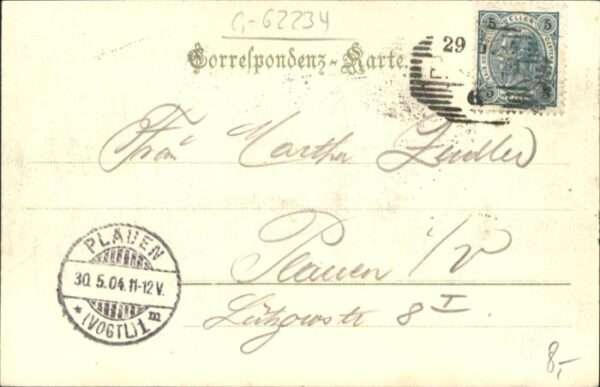 C-62234
Correspondenz-Karte.
5 5
5 5
29
6
Frau Martha Zeidler
Plauen i/V
Lützowstr 8 I
PLAUEN
30. 5. 04. 11-12 V.
* (VOGTL) 1 m
8,-